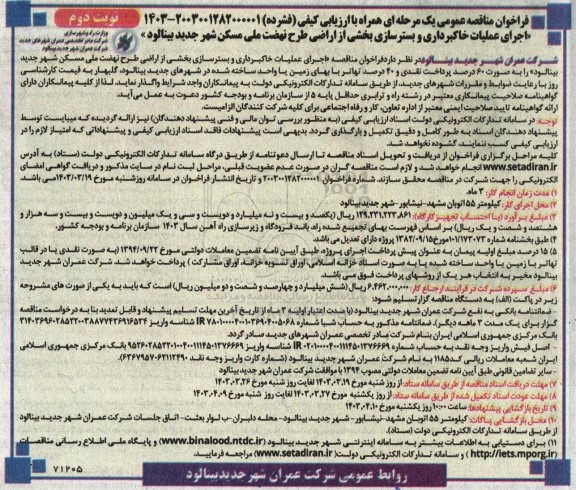 نوبت دوم
فراخوان مناقصه عمومی یک مرحله ای همراه با ارزیابی کیفی (فشرده) ۲۰۰۳۰۰۱۲۸۲۰۰۰۰۰۱-۱۴۰۳
«اجرای عملیات خاکبرداری و بسترسازی بخشی از اراضی طرح نهضت ملی مسکن شهر جدید بینالود»
وزارت راه و شهرسازی
شرکت مادر تخصصی عمران شهرهای جدید
شرکت عمران شهر جدید بینالود
شرکت عمران شهر جدید بینالود در نظر دارد فراخوان مناقصه «اجرای عملیات خاکبرداری و بسترسازی بخشی از اراضی طرح نهضت ملی مسکن شهر جدید
بینالود» را به صورت ۶۰ درصد پرداخت نقدی و ۴۰ درصد تهاتر با بهای زمین یا واحد ساخته شده در شهرهای جدید بینالود، گلبهار به قیمت کارشناسی
روز با رعایت ضوابط و مقررات شهرهای جدید، از طریق سامانه تدارکات الکترونیکی دولت به پیمانکاران واجد شرایط واگذار نماید. لذا از کلیه پیمانکاران دارای
گواهینامه صلاحیت پیمانکاری معتبر در رشته راه و ترابری حداقل پایه ۵ از سازمان برنامه و بودجه کشور دعوت به عمل می‌آید.
ارائه گواهینامه تایید صلاحیت ایمنی معتبر از اداره تعاون، کار و رفاه اجتماعی برای کلیه شرکت کنندگان الزامیست.
توجه: در سامانه تدارکات الکترونیکی دولت اسناد ارزیابی کیفی (به منظور بررسی توان مالی و فنی پیشنهاد دهندگان) نیز ارائه گردیده که میبایست توسط
پیشنهاد دهندگان اسناد به طور کامل و دقیق تکمیل و بارگذاری گردد. بدیهی است پیشنهادات فاقد اسناد ارزیابی کیفی و پیشنهاداتی که امتیاز لازم را در
ارزیابی کیفی کسب ننمایند، گشوده نخواهد شد.
کلیه مراحل برگزاری فراخوان از دریافت و تحویل اسناد مناقصه تا ارسال دعوتنامه از طریق درگاه سامانه تدارکات الکترونیکی دولت (ستاد) به آدرس
www.setadiran.ir انجام خواهد شد و لازم است مناقصه گران در صورت عدم عضویت قبلی، مراحل ثبت نام در سایت مذکور و دریافت گواهی امضای
الکترونیکی را جهت شرکت در مناقصه محقق سازند. شماره فراخوان ۲۰۰۳۰۰۱۲۸۲۰۰۰۰۰۱ و تاریخ انتشار فراخوان در سامانه روز شنبه مورخ ۱۴۰۳/۰۳/۱۹ می باشد.
۱) مدت زمان انجام کار: ۳ ماه.
۲) محل اجرای کار: کیلومتر ۵۵ اتوبان مشهد-نیشابور- شهر جدید بینالود
۳) مبلغ برآورد (با احتساب تجهیز کارگاه): ۱۲۹,۲۳۱,۲۲۳,۸۶۱ ریال (یکصد و بیست و نه میلیارد و دویست و سی و یک میلیون و دویست و بیست و سه هزار و
هشتصد و شصت و یک ریال) بر اساس فهرست بهای تجمیع شده راه، باند فرودگاه و زیرسازی راه آهن سال ۱۴۰۳ سازمان برنامه و بودجه کشور.
۴) طبق بخشنامه شماره ۱۰۱/۱۷۳۰۷۳ مورخ ۱۳۸۲/۰۹/۱۵ پروژه دارای تعدیل می باشد.
۵) ۱۵ درصد مبلغ اولیه پیمان به عنوان پیش پرداخت اجرای پروژه، طبق آیین نامه تضمین معاملات دولتی مورخ ۱۳۹۴/۰۹/۲۲ (به صورت نقدی یا در قالب
تهاتر با زمین یا واحد ساخته شده یا به صورت اسناد خزانه اسلامی، اوراق تسویه خزانه، اوراق مشارکت) پرداخت خواهد شد. شرکت عمران شهر جدید
بینالود مخیر به انتخاب هر یک از روشهای پرداخت فوق می باشد.
۶) مبلغ سپرده شرکت در فرآیند ارجاع کار: ۶,۴۶۲,۰۰۰,۰۰۰ ریال (شش میلیارد و چهارصد و شصت و دو میلیون ریال) است که باید به یکی از صورت های مشروحه
زیر در پاکت (الف) به دستگاه مناقصه گزار تسلیم شود:
- ضمانتنامه بانکی به نفع شرکت عمران شهر جدید بینالود (با مدت اعتبار اولیه ۳ ماه از تاریخ آخرین مهلت تسلیم پیشنهاد و قابل تمدید بنا به درخواست مناقصه
بانک مرکزی جمهوری اسلامی ایران بنام شرکت مادر تخصصی عمران شهرهای جدید صادر گردد.
- سایر تضامین قانونی طبق آیین نامه تضمین معاملات دولتی مصوب ۱۳۹۴ با موافقت شرکت عمران شهر جدید بینالود
۷) مهلت دریافت اسناد مناقصه از طریق سامانه ستاد: از روز شنبه مورخ ۱۴۰۳.۰۳.۱۹ لغایت روز شنبه مورخ ۱۴۰۳.۰۳.۲۶
۸) مهلت عودت اسناد تکمیل شده از طریق سامانه ستاد: از روز یکشنبه مورخ ۱۴۰۳.۰۳.۲۷ لغایت روز شنبه مورخ ۱۴۰۳.۰۴.۰۹
۹) تاریخ بازگشایی پیشنهادها: ساعت ۱۰:۰۰ روز یکشنبه مورخ ۱۴۰۳.۰۴.۱۰
۱۰) محل بازگشایی پاکات: کیلومتر ۵۵ اتوبان مشهد-نیشابور- شهر جدید بینالود- محله دلبران- بلوار بعثت- اتاق جلسات شرکت عمران شهر جدید بینالود
از طریق سامانه تدارکات الکترونیکی دولت (ستاد).
۱۱) برای دستیابی به اطلاعات بیشتر به سامانه اینترنتی شهر جدید بینالود (www.binalood.ntdc.ir) و پایگاه ملی اطلاع رسانی مناقصات
(http://iets.mporg.ir) و سامانه تدارکات الکترونیکی دولت (www.setadiran.ir) مراجعه فرمایید.
۷۱۲۰۵
روابط عمومی شرکت عمران شهر جدید بینالود